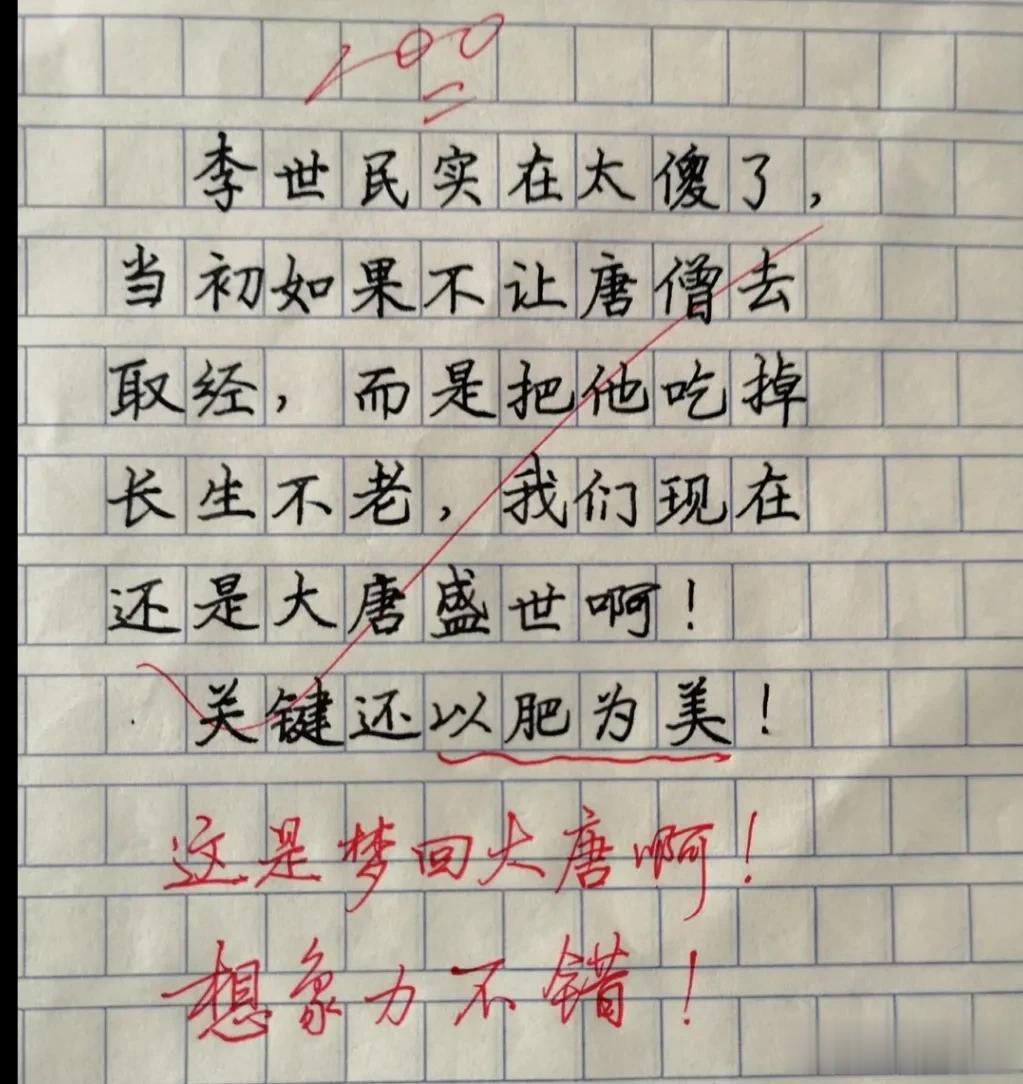 100
李世民实在太傻了，
当初如果不让唐僧去
取经，而是把他吃掉
长生不老，我们现在
还是大唐盛世啊！
关键还以肥为美！
这是梦回大唐啊！
想象力不错！